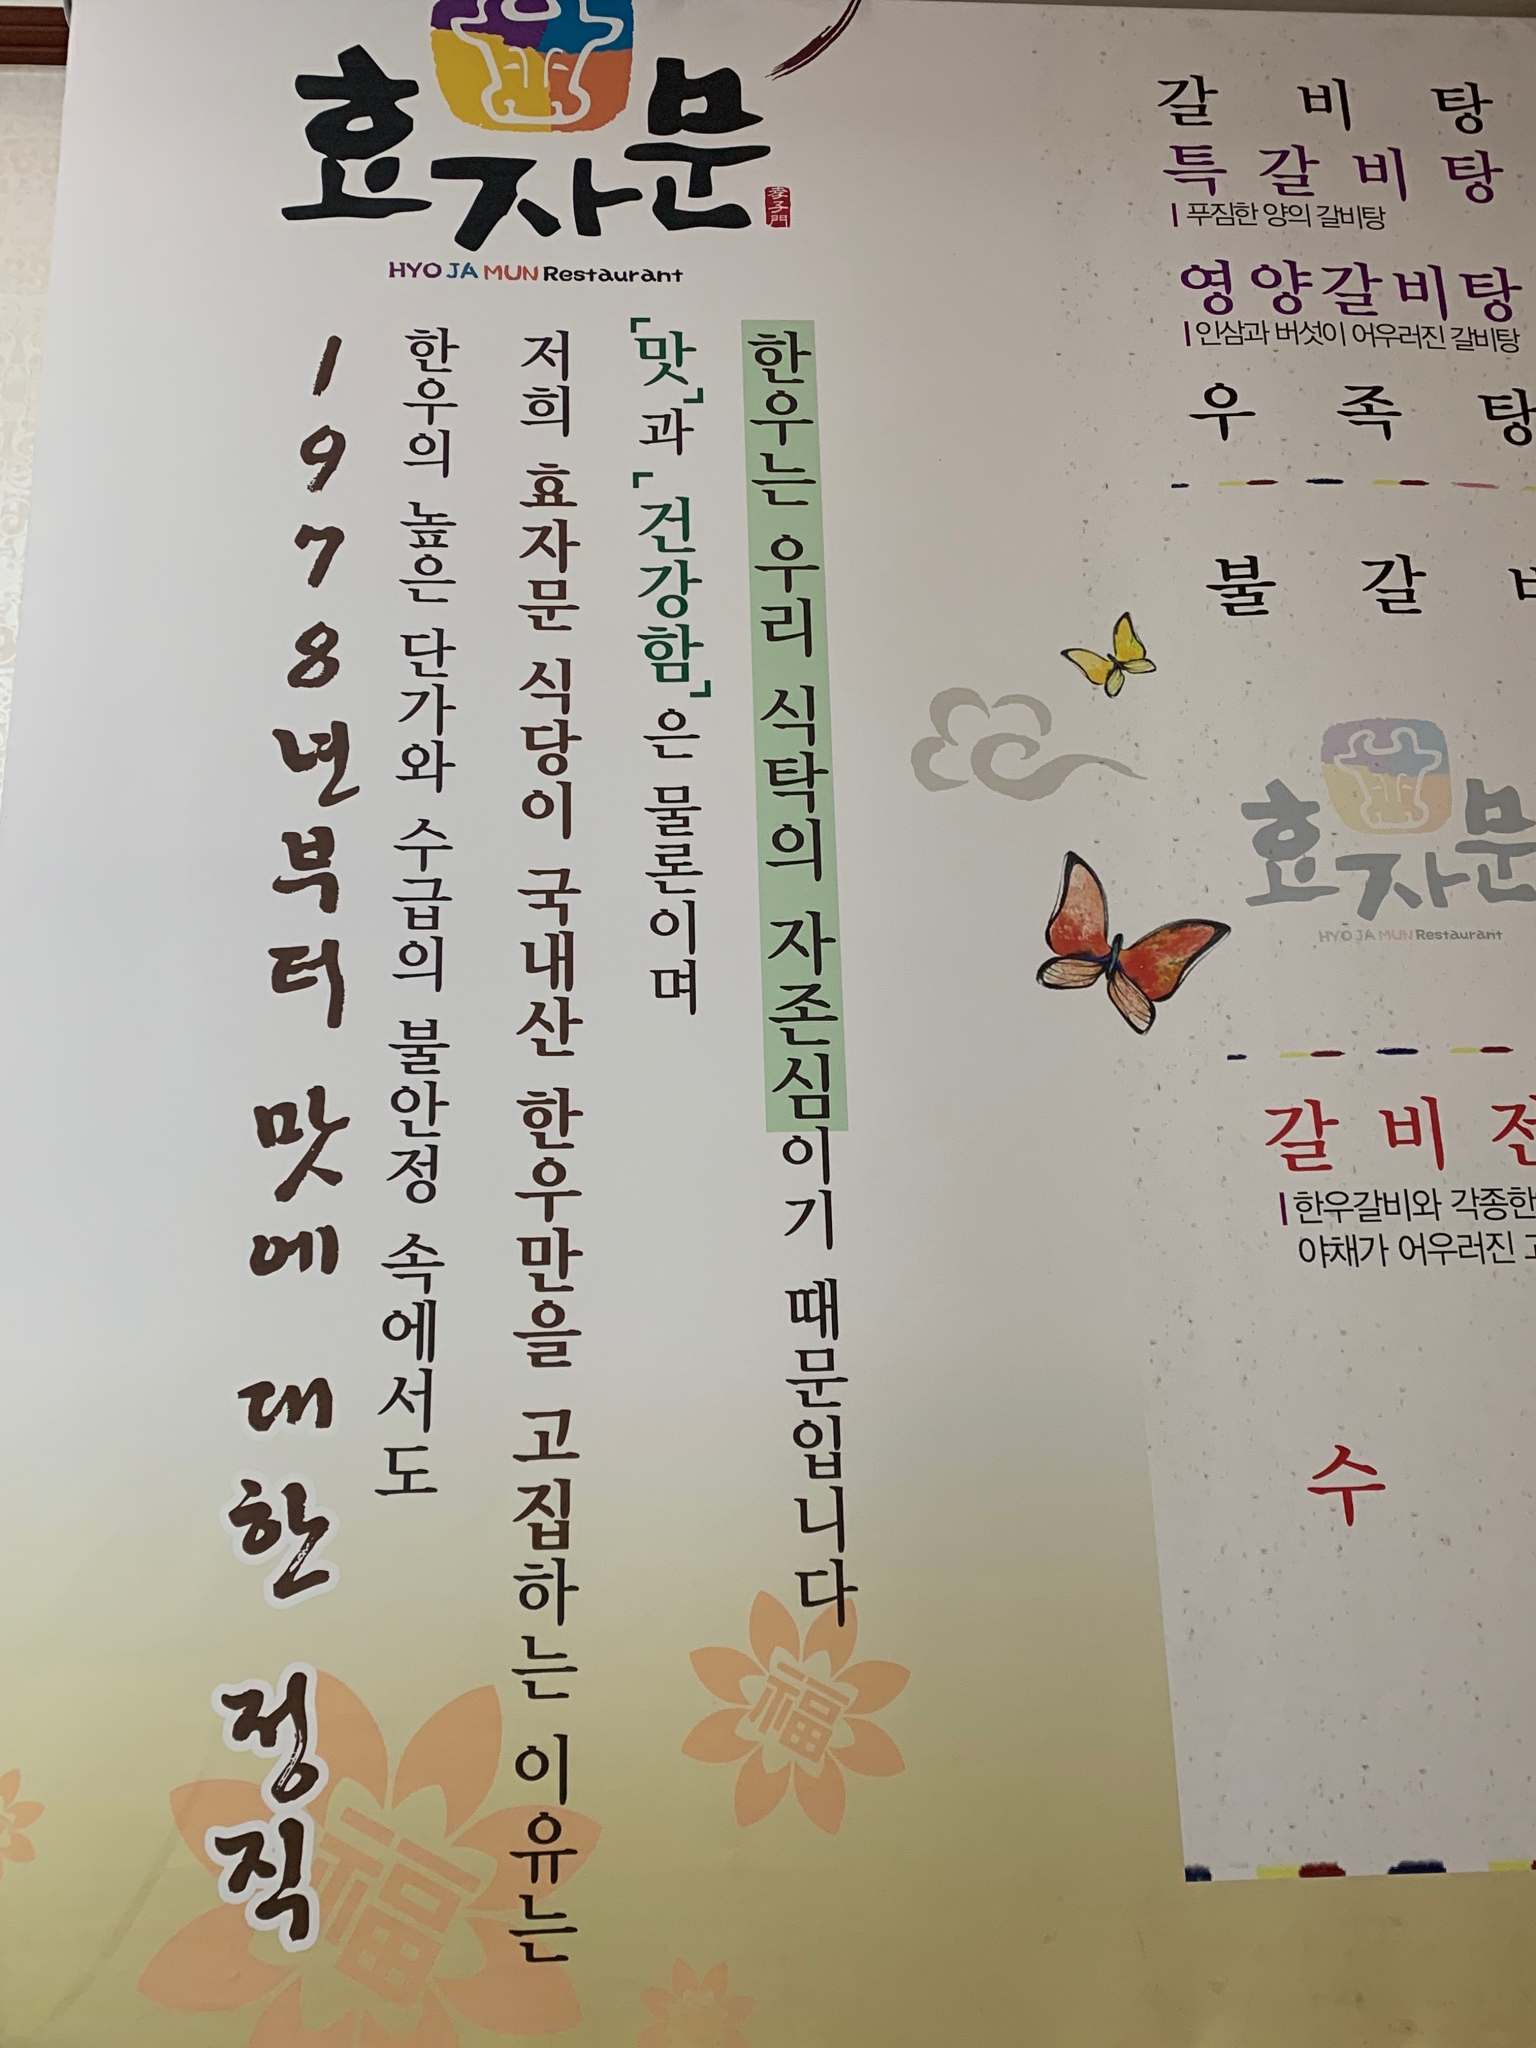 효자문
孝子門
HYO JA MUN Restaurant
1978년부터 맛에 대한 정직
한우의 높은 단가와 수급의 불안정 속에서도
저희 효자문 식당이 국내산 한우만을 고집하는 이유는
「맛」과 「건강함」은 물론이며
한우는 우리 식탁의 자존심이기 때문입니다
福
福
갈비탕
특갈비탕
푸짐한 양의 갈비탕
영양갈비탕
인삼과 버섯이 어우러진 갈비탕
우족탕
불갈
효자문
HYO JA MUN Restaurant
갈비전
한우갈비와 각종한
야채가 어우러진
수